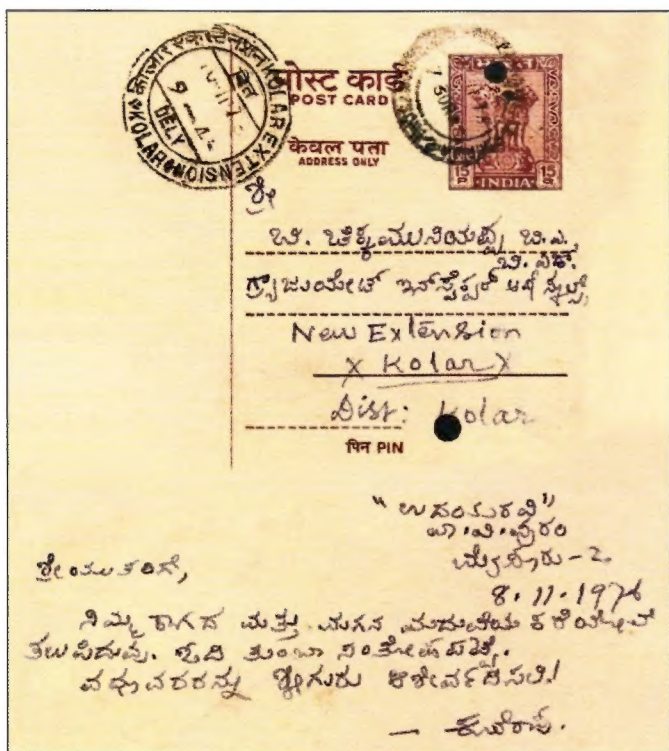 कोलार एक्स्टेन्शन KOLAR EXTENSION
KOLAR
DELY
पोस्ट कार्ड
POST CARD
केवल पता
ADDRESS ONLY
भारत
15 P. 15 पै.
INDIA
ಶ್ರೀ
ಬಿ. ಚಿಕ್ಕಮುನಿಯಪ್ಪ ಬಿ.ಎ.,
ಬಿ.ಎಡ್.
ಗ್ರ್ಯಾಜುಯೇಟ್ ಇನ್‌ಸ್ಪೆಕ್ಟರ್ ಆಫ್ ಸ್ಕೂಲ್ಸ್
New Extension
X Kolar X
Dist: Kolar
पिन PIN
"ಉದಯರವಿ"
ವಾ.ವಿ.ಪುರಂ
ಮೈಸೂರು-2
8.11.1974
ಶ್ರೀಯುತರಿಗೆ,
ನಿಮ್ಮ ಕಾಗದ ಮತ್ತು ಮಗನ ಮದುವೆಯ ಕರೆಯೋಲೆ
ತಲುಪಿದುವು. ಓದಿ ತುಂಬಾ ಸಂತೋಷಪಟ್ಟೆ.
ವಧೂವರರನ್ನು ಶ್ರೀಗುರು ಆಶೀರ್ವದಿಸಲಿ!
— ಕುವೆಂಪು.